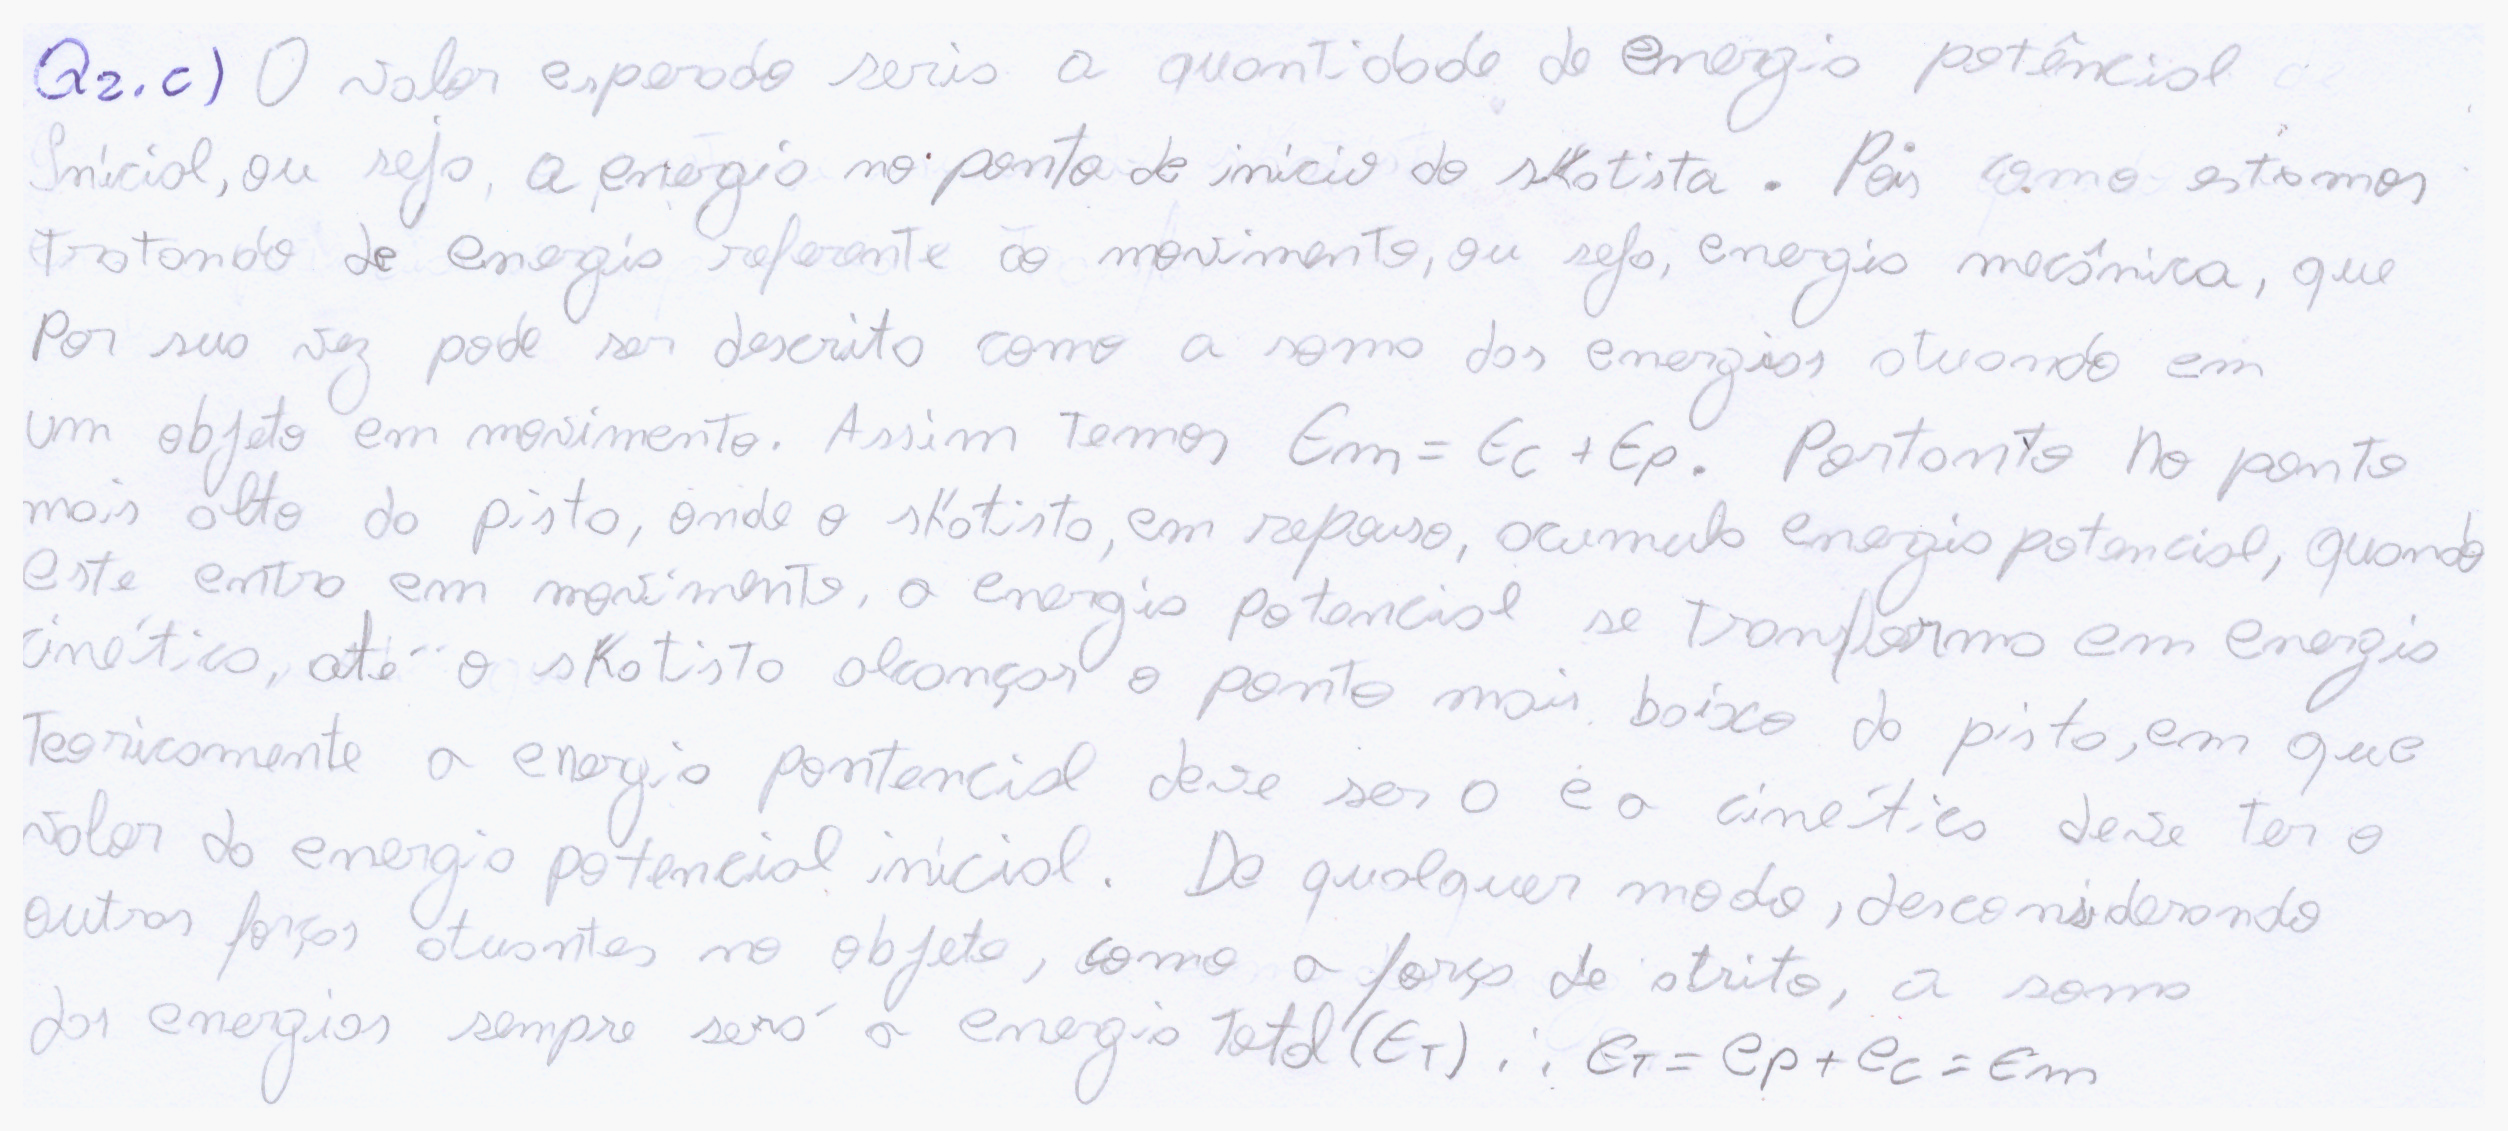 Q2.c) O valor esperado seria a quantidade de energia potêncial
Inicial, ou seja, a energia no ponto de inicio do skatista. Pois como estamos
tratando de energia referente ao movimento, ou seja, energia mecânica, que
Por sua vez pode ser descrita como a soma das energias atuando em
um objeto em movimento. Assim temos Em = Ec + Ep. Portanto no ponto
mais alto da pista, onde o skatista, em repouso, acumula energia potencial, quando
este entra em movimento, a energia potencial se transforma em energia
cinética, até o skatista alcançar o ponto mais baixo da pista, em que
Teoricamente a energia pontencial deve ser 0 e a cinética deve ter o
valor da energia potencial inicial. De qualquer modo, desconsiderando
outras forças atuantes no objeto, como a força de atrito, a soma
das energias sempre será a energia Total (ET) ∴ ET = Ep + Ec = Em